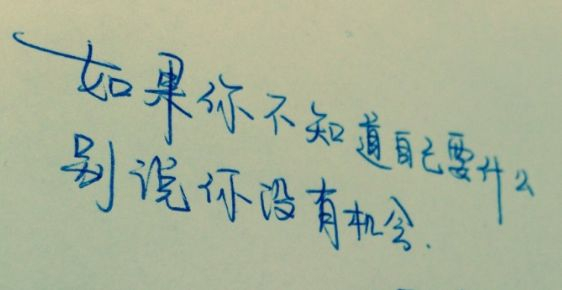 如果你不知道自己要什么
别说你没有机会.